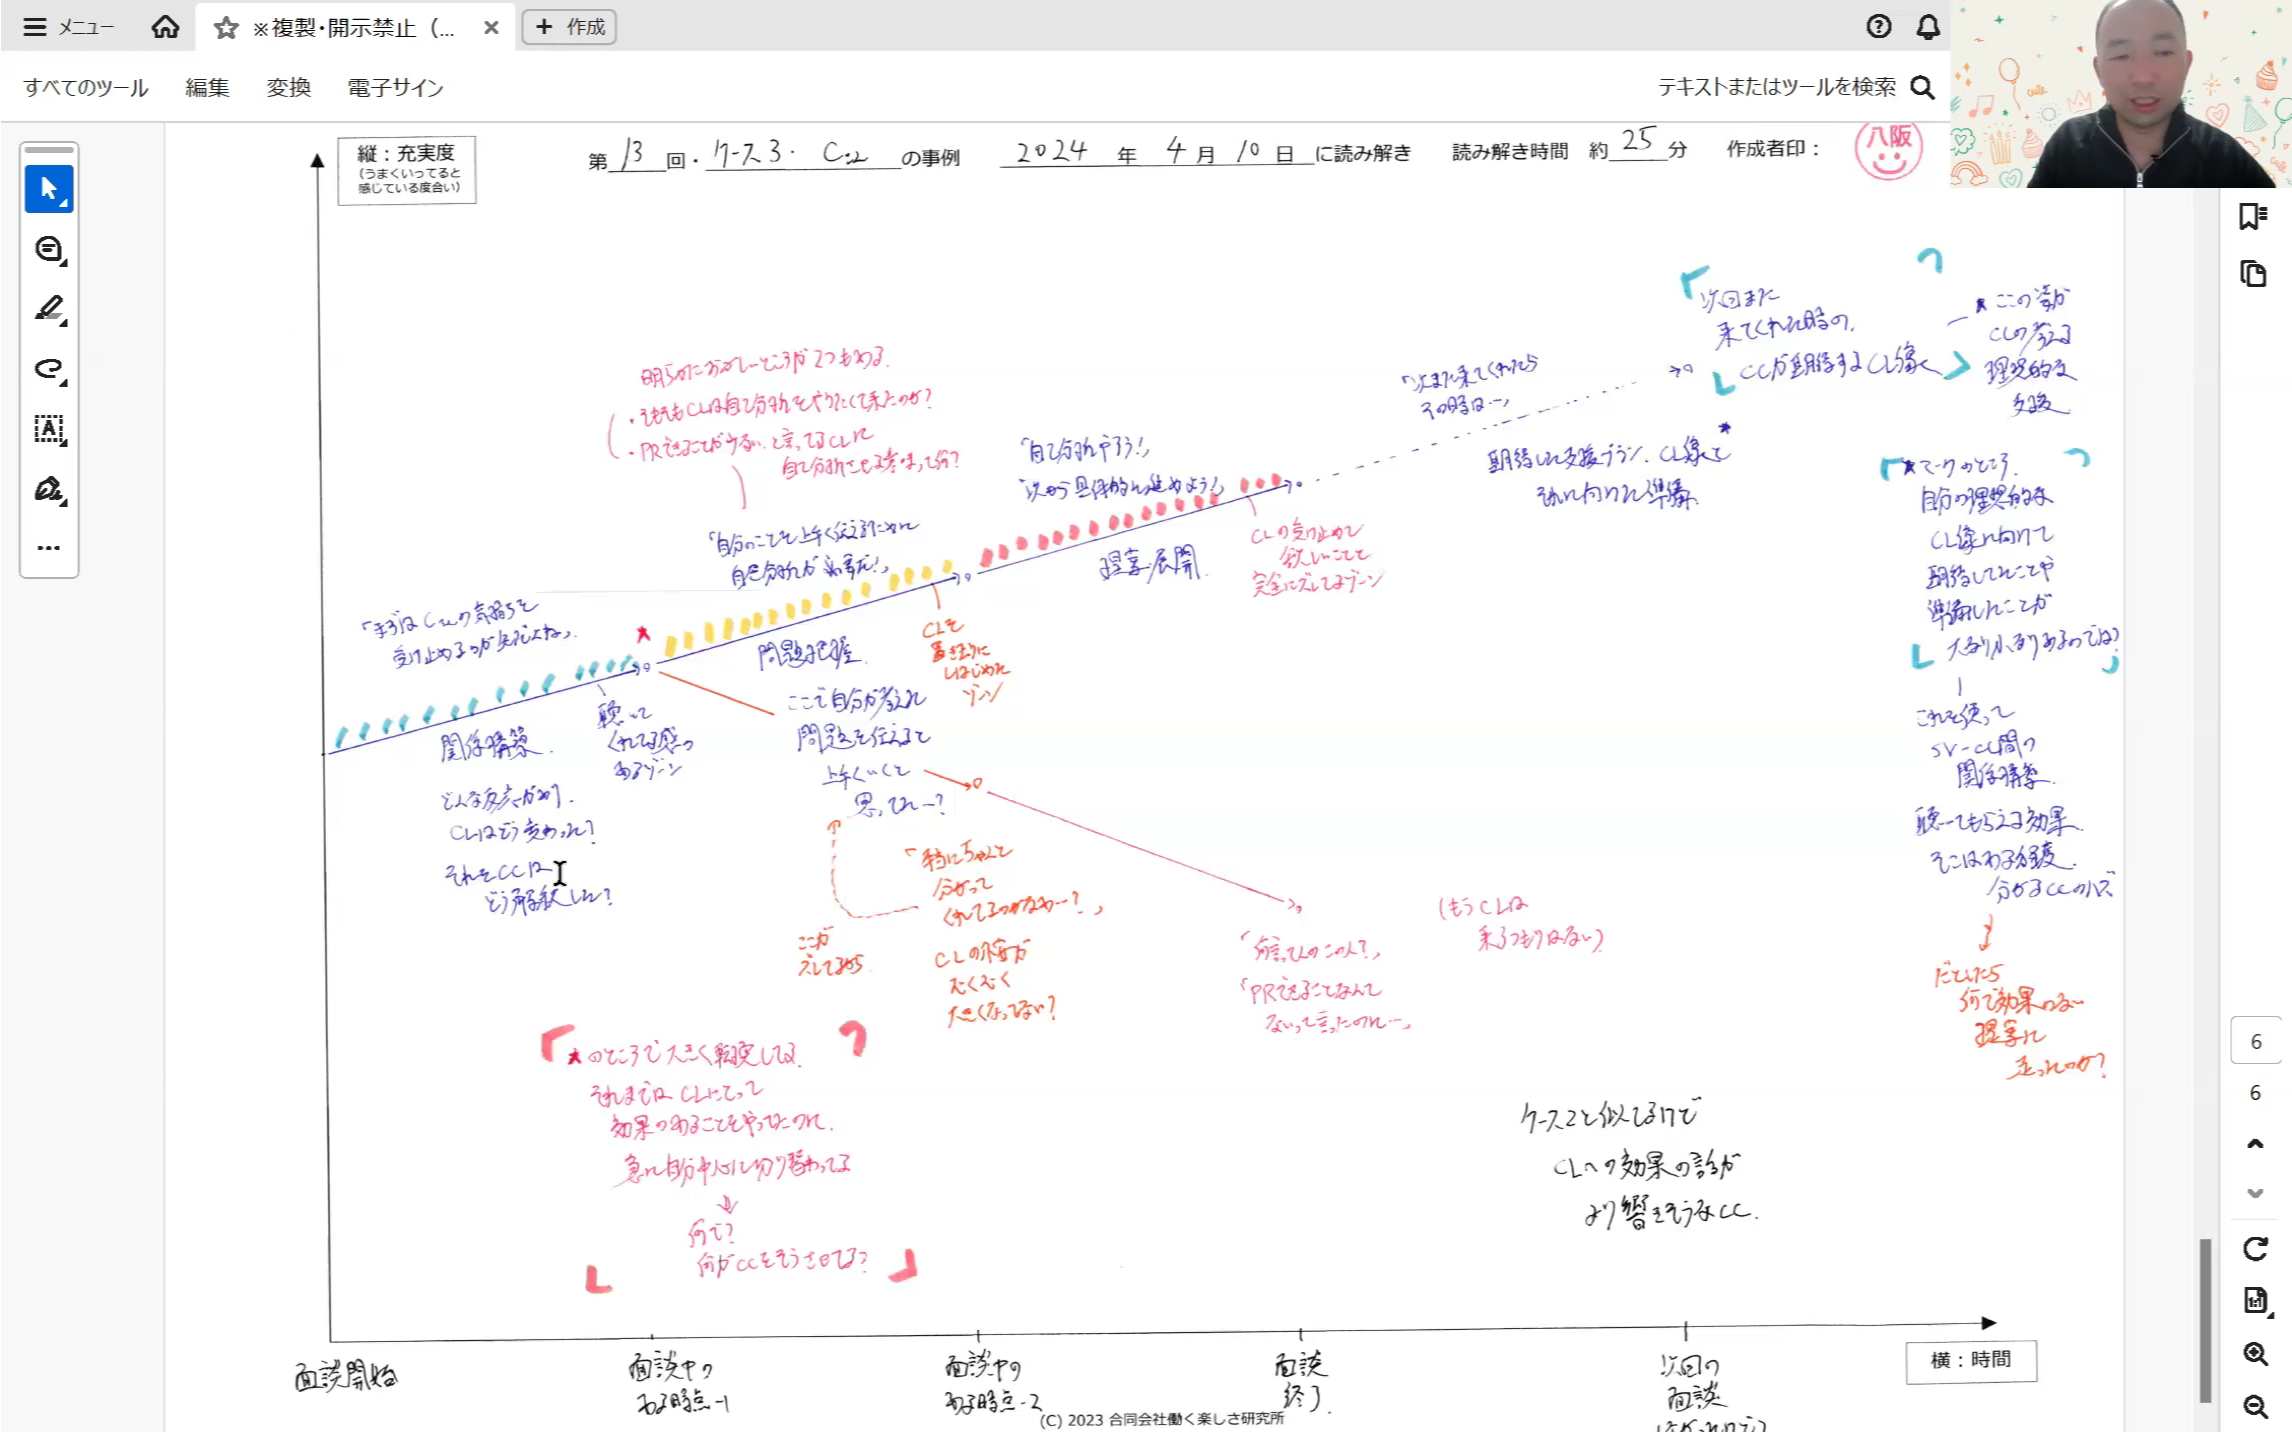 メニュー
※複製・開示禁止（...
作成
すべてのツール
編集
変換
電子サイン
テキストまたはツールを検索
縦：充実度
（うまくいってると
感じている度合い）
第 13 回・ケース3・ の事例 2024 年 4 月 10 日 に読み解き 読み解き時間 約 25 分 作成者印：
八阪
明らかにおかしいところが2つもある。
・そもそもCLは自己分析をやりたくて来たのか？
・PRできることがない、と言ってるCLに
自己分析させる意味って何？
「自分のことを上手く伝えるために
自己分析が必要だ！」
「自己分析やろう！」
「次から具体的に進めよう！」
「次また来てくれたら
その時は…」
次回また
来てくれた時の、
CCが期待するCL像
★ここの姿が
CLの考える
理想的な
支援
期待した支援プラン、CL像と
それに向けた準備
★マークのところ。
自分の理想的な
CL像に向けて
期待してたことや
準備したことが
大なり小なりあるのでは？
これを使って
関係構築
聴いてもらえる効果。
そこはある程度
分かるCCのハズ
だとしたら
何で効果のない
提案に
走ったのか？
受け止めるのが先だよね」
関係構築
聴いて
くれてる感の
あるゾーン
どんな反応があり、
CLはどう変わった？
それをCCは
どう解釈した？
問題把握
CLを
置き去りに
しはじめた
ゾーン
ここで自分が考えた
問題を伝えると
上手くいくと
思ってた…？
提案・展開
CLの受け止めて
欲しいことと
完全にズレてるゾーン
「本当にちゃんと
分かって
くれてるのかなぁ…？」
CLの不安が
むくむく
大きくなってない？
ここが
ズレてるから
「何言ってんのこの人？」
「PRできることなんて
ないって言ったのに…」
（もうCLは
来るつもりはない）
★のところで大きく転換してる。
それまではCLにとって
効果のあることをやってたのに、
急に自分中心に切り替わってる
何で？
何がCCをそうさせてる？
ケース2と似てるけど
CLへの効果の話が
より響きそうなCC.
面談開始
面談中の
ある時点-1
面談中の
ある時点-2
面談
終了
次回の
面談
横：時間
(C) 2023 合同会社働く楽しさ研究所
6
6